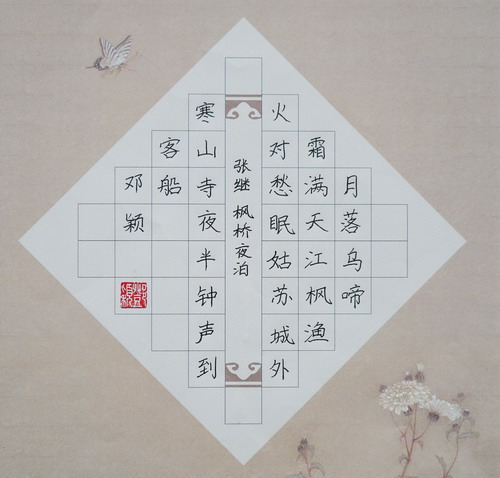 月落乌啼
霜满天江枫渔
火对愁眠姑苏城外
张继 枫桥夜泊
寒山寺夜半钟声到
客船
邓颖